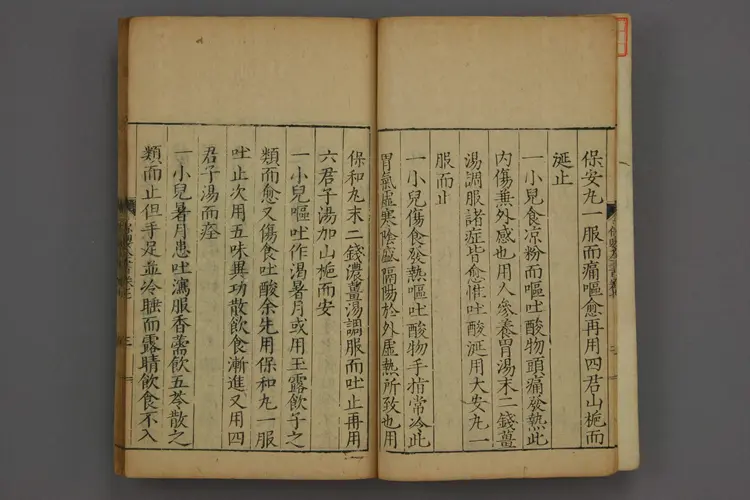 保安九一服而痛嘔愈再用四君山梔而
涎止
一小兒食凉粉而嘔吐酸物頭痛發熱此
内傷兼外感也用人參養胃湯末二錢薑
湯調服諸症皆愈惟吐酸涎用大安九一
服而止
一小兒傷食發熱嘔吐酸物手指常冷此
胃氣虛寒陰盛隔陽於外虛熱所致也用
保和九末二錢濃薑湯調服而吐止再用
六君子湯加山梔而安
一小兒嘔吐作渴暑月或用玉露飲子之
類而愈又傷食吐酸余先用保和九一服
吐止次用五味異功散飲食漸進又用四
君子湯而痊
一小兒暑月患吐瀉服香薷飲五苓散之
類而止但手足並冷睡而露睛飲食不入